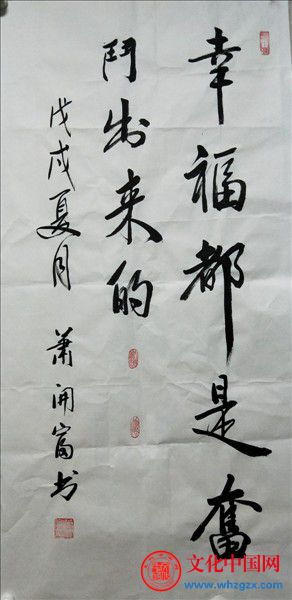 幸福都是奮
鬥出来的
戊戌夏月 萧開富书
文化中国网
www.whzgzx.com